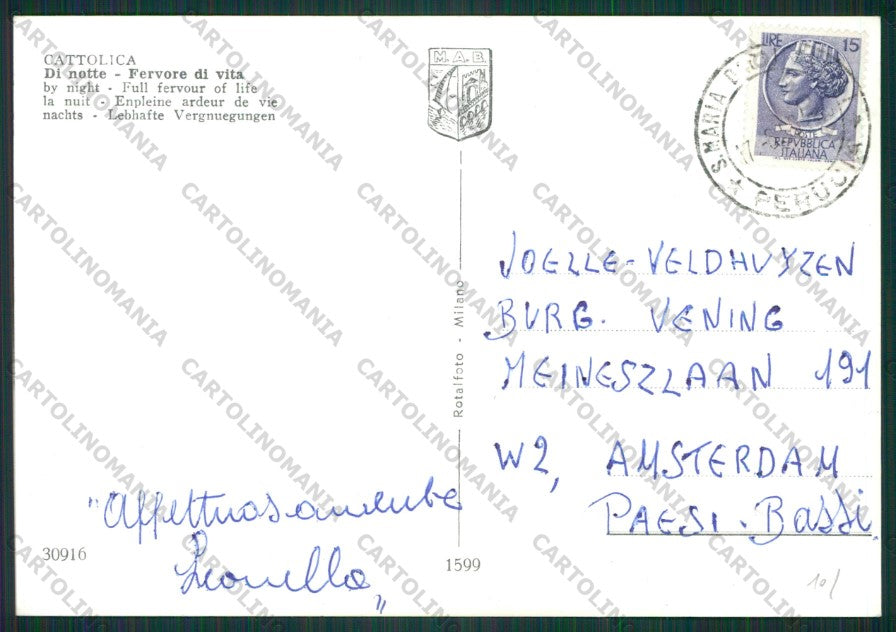 CATTOLICA
Di notte - Fervore di vita
by night - Full fervour of life
la nuit - Enpleine ardeur de vie
nachts - Lebhafte Vergnuegungen
M. A. B.
LIRE 15
POSTE
REPVBBLICA
ITALIANA
S. MARIA
PERUGIA
JOELLE-VELDHUYZEN
BURG. VENING
MEINESZLAAN 191
W2, AMSTERDAM
PAESI-Bassi
"Affettuosamente
Leonella"
Rotalfoto - Milano
30916
1599
10/
CARTOLINOMANIA